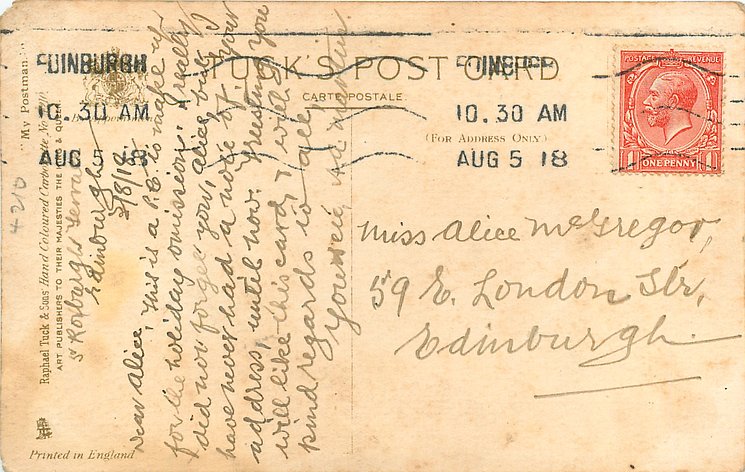 EDINBURGH
10.30 AM
AUG 5 18
TUCK'S POST CARD
CARTE POSTALE.
(FOR ADDRESS ONLY)
EDINBURGH
10.30 AM
AUG 5 18
POSTAGE REVENUE
1 ONE PENNY 1
"My Postman."
Raphael Tuck & Sons' Hand Coloured Carbonette No.
ART PUBLISHERS TO THEIR MAJESTIES THE KING & QUEEN
4210
Roxburgh Terrace
Edinburgh
5/8/18
Dear Alice, This is a P.C. to make up
for the holiday omission. I really
did not forget you, Alice but I
have never had a note of your
address, until now. Trusting you
will like this card, & with
kind regards to all,
Yours
Miss Alice McGregor,
59 E. London Str,
Edinburgh.
Printed in England